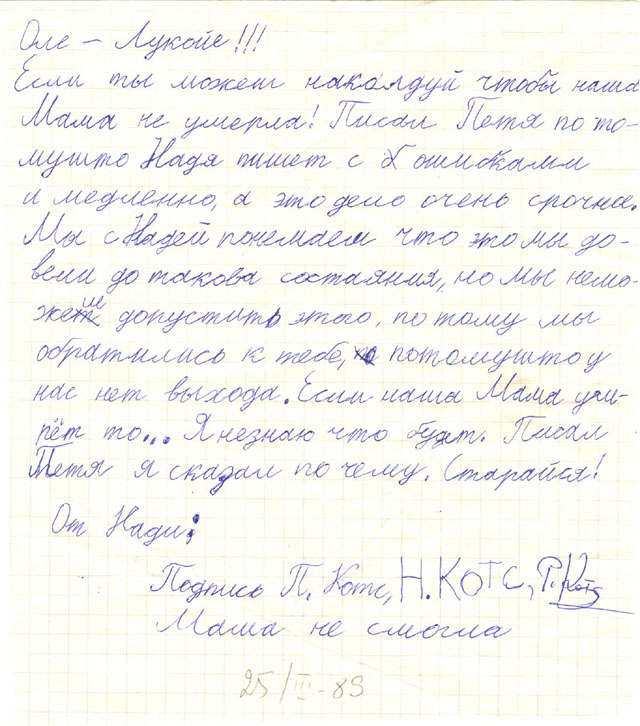 Оле – Лукойе!!!
Если ты можеш наколдуй чтобы наша
Мама не умерла! Писал Петя по то-
мушто Надя пишет с ошибками
и медленно, а это дело очень срочное.
Мы с Надей понемаем что это мы до-
вели до такова состаяния, но мы немо-
жем допустить этого, по тому мы
обратились к тебе, потомушто у
нас нет выхода. Если наша Мама ум-
рёт то... Я незнаю что будт. Писал
Петя я сказал по чему. Старайся!
От Нади:
Подпись П. Котс, Н. КОТС, Р. Котs
Мама не смогла
25/III-89